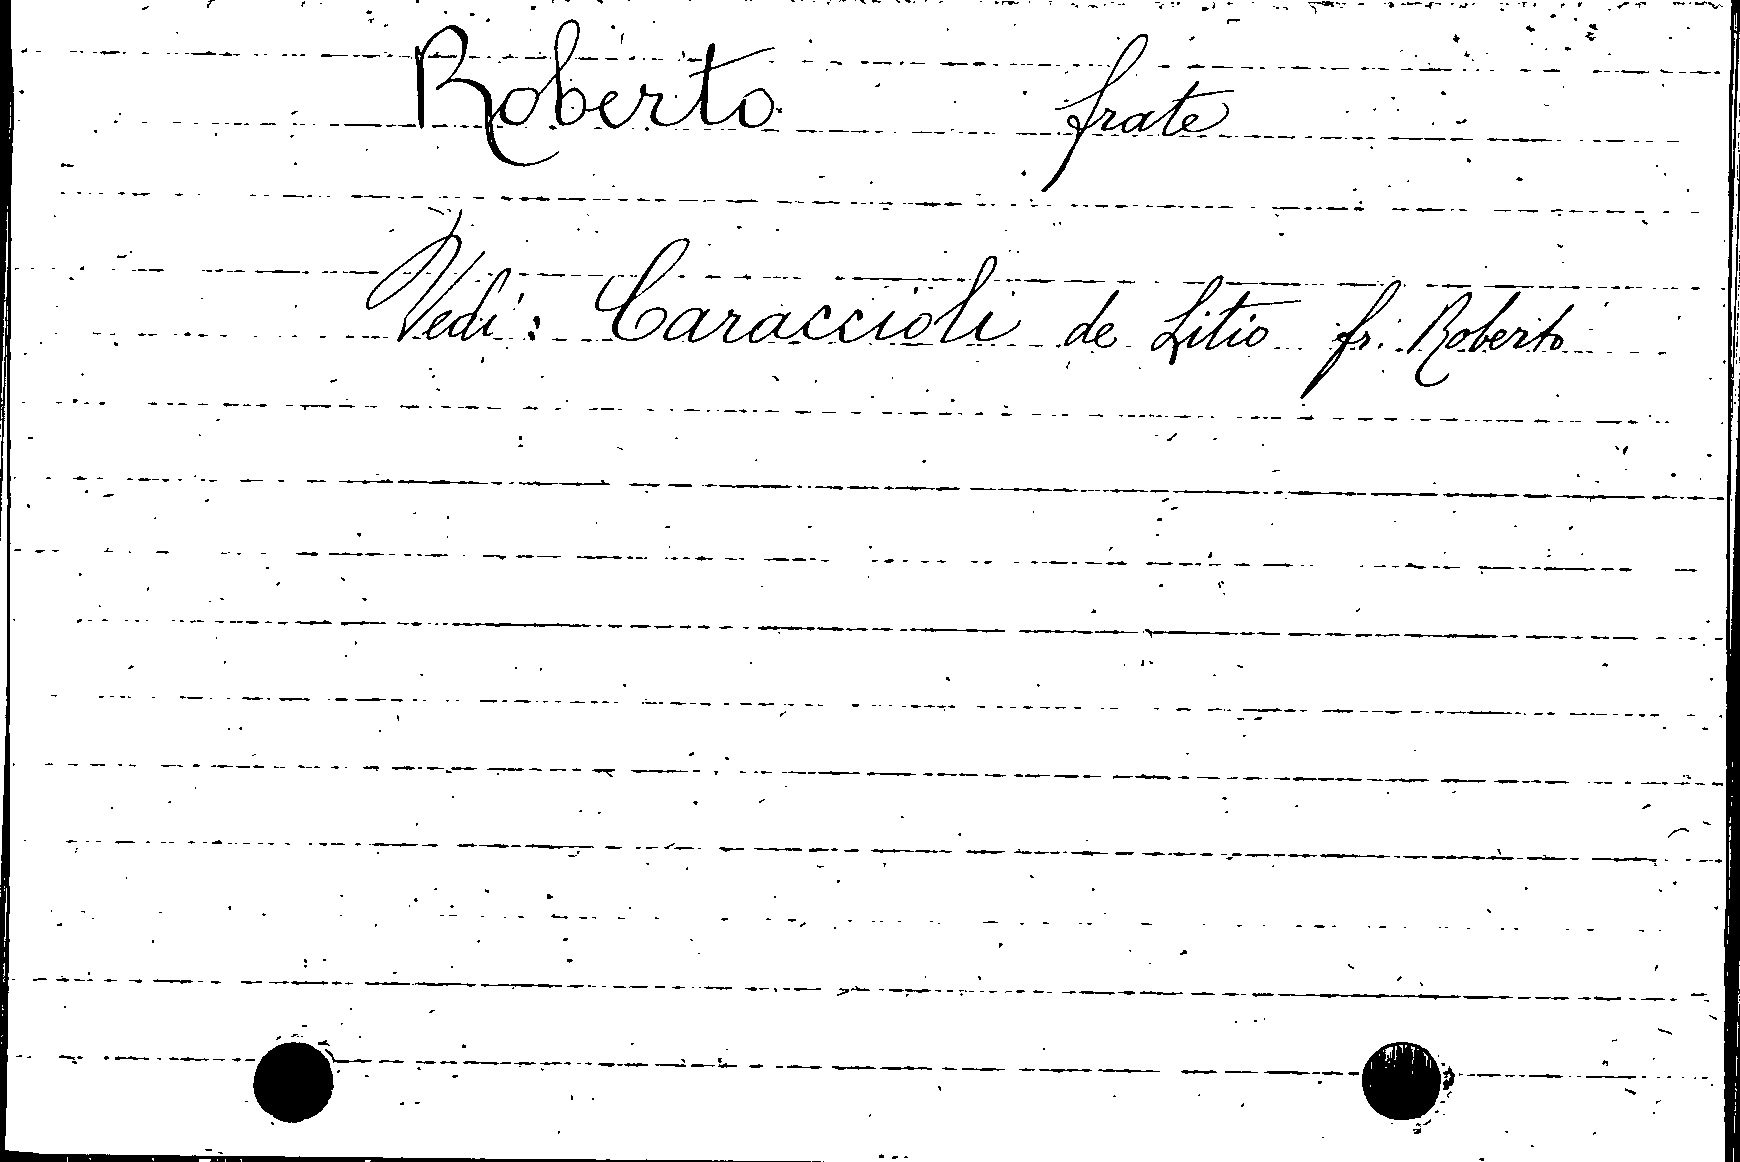 Roberto frate
Vedi: Caraccioli de Litio fr. Roberto